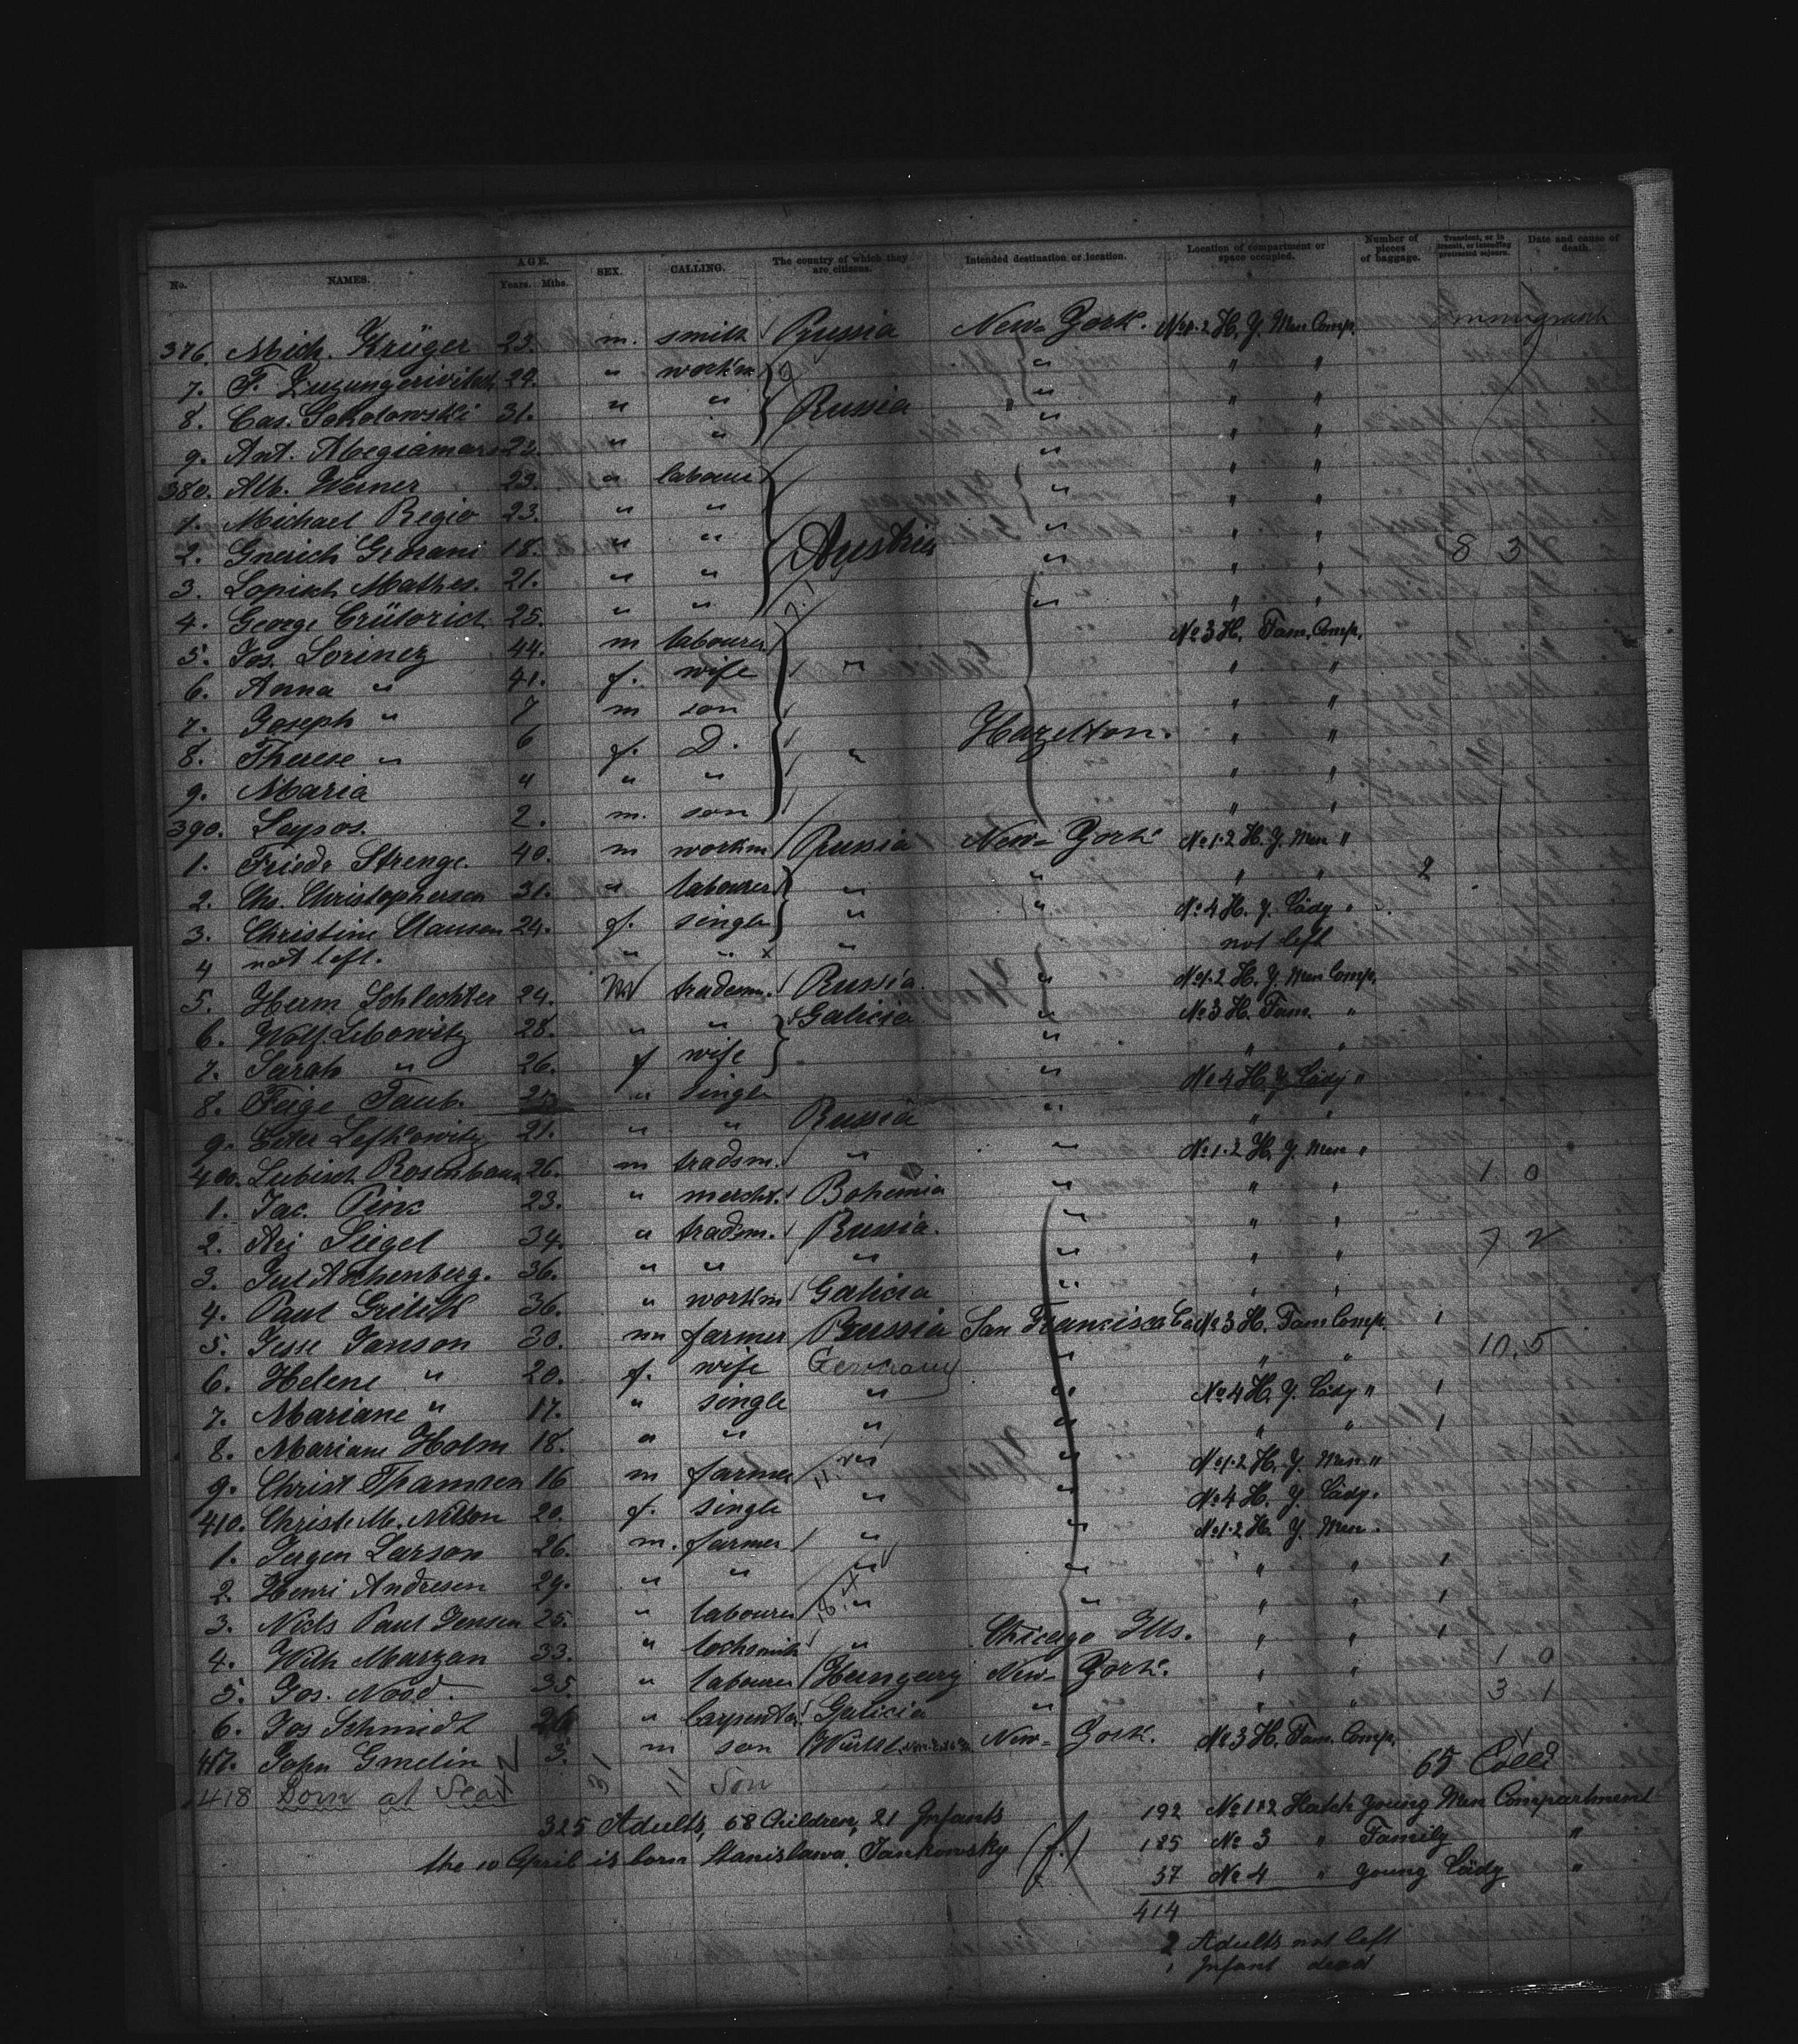 No. NAMES. AGE. Years. Mths. SEX. CALLING. The country of which they are citizens. Intended destination or location. Location of compartment or space occupied. Number of pieces of baggage. Transient, or in transit, or intending protracted sojourn. Date and cause of death.
376. Mich. Krüger 23. m. smith Russia New-York. No 1.2 H. Y. Men Comp.
7. F. 29. " workm " " "
8. Cas. Sokolowski 31. " " Russia " " "
9. Ant. 22. " " " " "
380. Alb. Werner 23. " labourer " " "
1. Michael Regio 23. " " " " "
2. 18. " " Austria " " " 8 3
3. Lopisch Mathes. 21. " " " " "
4. George 25. " " " " "
5. Jos. Lorincz 44. m labourer No 3 H. Fam. Comp.
6. Anna " 41. f. wife " " "
7. Joseph " 7 m son " "
8. Therese " 6 f. D. Hazelton. " "
9. Maria 4 " " " " "
390. Lajos. 2. m. son " "
1. Friedr Strenge. 40. m workm Russia New-York No 1.2 H. Y. Men "
2. Chs. Christophersen 31. " labourer " " " " 2
3. Christine Clausen 24. f. single " " No 4 H. Y. Lädy "
4 not left. " " x " not left
5. Herm Schlechter 24. m tradesm. Russia. " No 1.2 H. Y. Men Comp.
6. Wolf Libowitz 28. " " Galicia " No 3 H. Fam. "
7. Sarah " 26. f wife " " "
8. Feige Taub. " single " No 4 H. Y. Lädy "
9. Ester Lefkowitz 21. " " Russia " " "
400. Lubisch Rosenbaum 26. m tradsm. " " No 1.2 H. Y. Men "
1. Jac. Pink 23. " mercht. Bohemia " " " 1 0
2. Ari Siegel 34. " tradsm. Russia. " " "
3. Jul Aschenberg. 36. " " " " " " 7 2
4. Paul 36. " workm Galicia " " "
5. Jesse Janson 30. m farmer Prussia San Francisco Ca No 3 H. Fam Comp. 1
6. Helene " 20. f. wife Germany " " " 10.5
7. Mariane " 17. " single " " No 4 H. Y. Lädy " 1
8. Mariane Holm 18. " " " " " " 1
9. Christ Thamsen 16 m farmer " " No 1.2 H. Y. Men "
410. Christ. M. Nilson 20. f. single " " No 4 H. Y. Lädy.
1. Jergen Larson 26. m. farmer " " No 1.2 H. Y. Men.
2. Henri Andresen 29. " " " " " " 1
3. Niels Paul Jensen 25. " labourer " " " " 1
4. Wilh Marzan 33. " locksmith " Chicago Ills. " " 1
5. Jos. Nood. 35. " labourer Hungary New-York. " " 1 0
6. Jos Schmidt 26 " Carpenter Galicia " " " 3 1
417. John Gmelin 3. m son New-York. No 3 H. Fam. Comp.
418 Born at Sea 11 Son 65 Colli
325 Adults, 68 Children, 21 Infants
the 10 April is born Stanislawa Jankowsky (f.)
192 No 1 & 2 Hatch Young Men Compartment
185 No 3 " Family "
37 No 4 " Young Lädy "
414
2 Adults not left
1 Infant dead